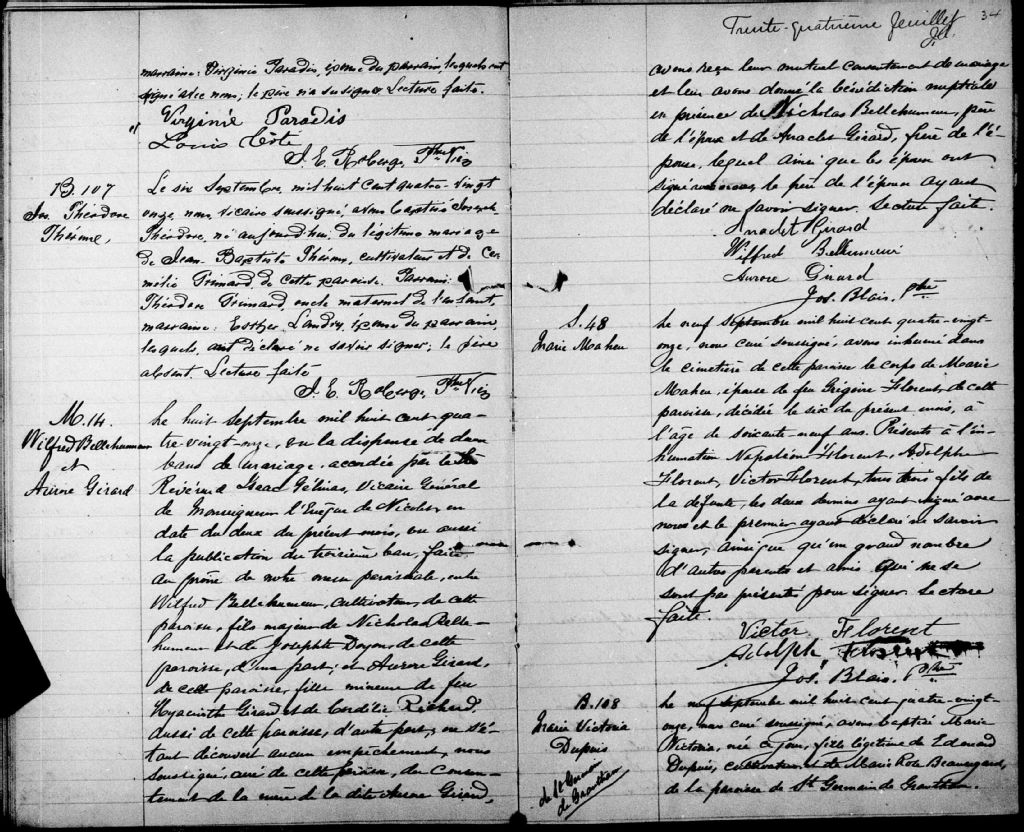 marraine: Virginie Paradis, épouse du parrain, lesquels ont
signé avec nous, le père n'a su signer. Lecture faite.
Virginie Paradis
" Louis Côté
J. E. Roberge, Ptre Vic
B. 107
Jos. Théodore
Thérme,
Le six Septembre, mil huit cent quatre-vingt
onze, nous, vicaire soussigné, avons baptisé Joseph
Théodore, né aujourd'hui, du légitime mariage
de Jean Baptiste cultivateur et de
Primard de cette paroisse. Parrain:
Théodore Primard, oncle maternel de l'enfant
marraine: Esther Landry, épouse du parrain,
lesquels, ont déclaré ne savoir signer; le père
absent. Lecture faite
J. E. Roberge, Ptre Vic
M. 14.
Wilfred Bellehumeur
et
Aurore Girard
Le huit septembre mil huit cent qua-
tre vingt-onze, vu la dispense de deux
bans de mariage, accordée par le
Révérend Isaac Gélinas, Vicaire Général
de Monseigneur l'Evêque de Nicolet, en
date du deux du présent mois, vu aussi
la publication du troisième ban, faite
au prône de notre messe paroissiale, entre
Wilfred Bellehumeur, cultivateur, de cette
paroisse, fils majeur de Nicholas Belle-
humeur et de Josephte Doyon de cette
paroisse, d'une part, et Aurore Girard,
de cette paroisse, fille mineure de feu
Hyacinthe Girard et de Cordélie Richard,
aussi de cette paroisse, d'autre part; ne s'é-
tant découvert aucun empêchement, nous
soussigné, curé de cette paroisse, du consen-
tement de la mère de la dite Aurore Girard,
34
Trente-quatrième feuillet
avons reçu leur mutuel consentement de mariage
et leur avons donné la bénédiction nuptiale
en présence de Nicholas Bellehumeur, père
de l'époux et de Anaclet Girard, frère de l'é-
pouse, lequel ainsi que les époux ont
signé avec nous, le père de l'époux ayant
déclaré ne savoir signer. Lecture faite.
Anaclet Girard
Wilfred Bellehumeur
Aurore Girard
Jos. Blais, Ptre
S. 48
Marie Maheu
Le neuf septembre mil huit cent quatre-vingt-
onze, nous curé soussigné, avons inhumé dans
le cimetière de cette paroisse le corps de Marie
Maheu, épouse de feu Grégoire Florent, de cette
paroisse, décédée le six du présent mois, à
l'âge de soixante-neuf ans. Présents à l'in-
humation Napoléon Florent, Adolphe
Florent, Victor Florent, tous trois fils de
la défunte, les deux derniers ayant signé avec
nous et le premier ayant déclaré ne savoir
signer, ainsi que qu'un grand nombre
d'autres parents et amis qui ne se
sont pas présentés pour signer. Lecture
faite.
Victor Florent
Adolph Florent
Jos. Blais. Ptre
B. 108
Marie Victoria
Dupuis
de St Germain
de Grantham
Le neuf septembre mil huit cent quatre-vingt-
onze, nous curé soussigné, avons baptisé Marie
Victoria, née ce jour, fille légitime de Edmond
Dupuis, cultivateur, et de Marie Rose Beauregard,
de la paroisse de St Germain de Grantham.